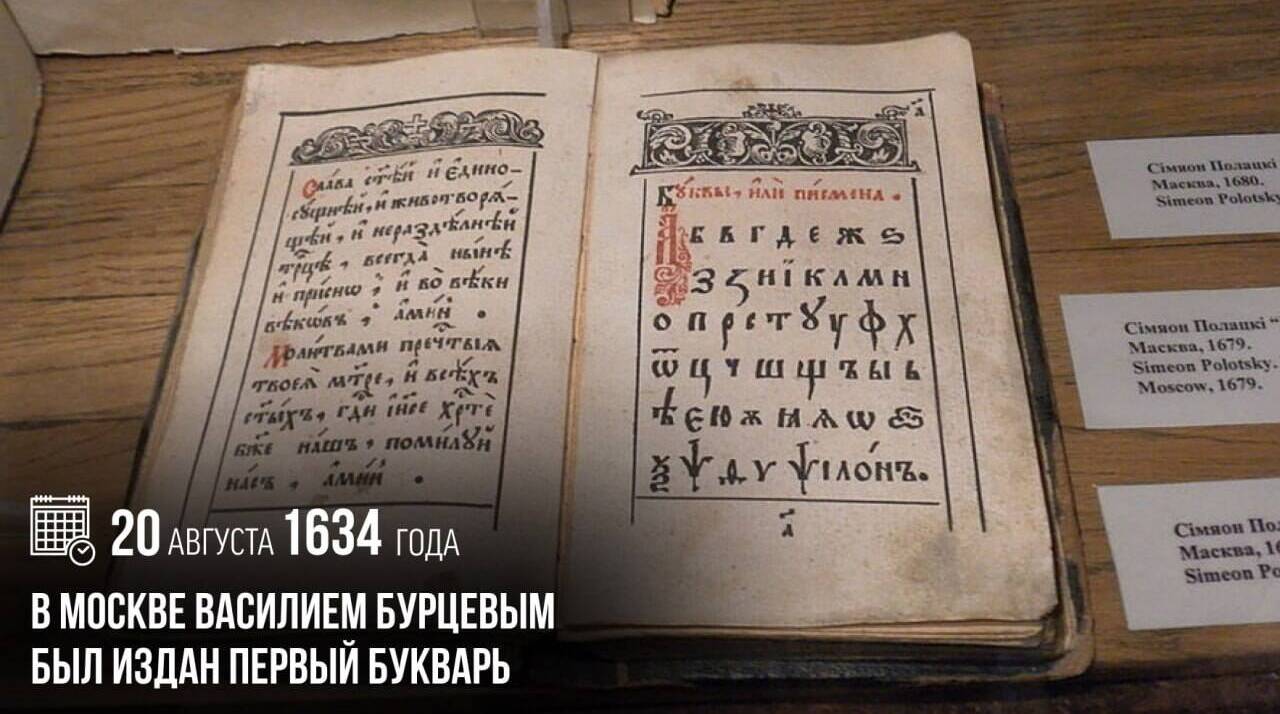 Слава ст҃ѣй и єдино-
сущнѣй, и животворѧ-
щей, и нераздѣлнѣй
трⷪ҇цѣ, всегда̀ ны́нѣ
и при́снѡ, и во вѣ́ки
вѣкѡ́въ, а҆ми́нь.
Моли́твами пречⷭ҇тыѧ
твоеѧ̀ мт҃ре, и всѣ́хъ
ст҃ы́хъ, гдⷭ҇и і҆и҃се хрⷭ҇тѐ
бж҃е на́шъ, поми́лꙋй
на́съ, а҆ми́нь.
Бꙋ́квы, и҆лѝ писмена̀.
А б в г д е ж ѕ
з ꙁ и ї к л м н
о п р с т ꙋ у ф х
ѿ ц ч ш щ ъ ы ь
ѣ є ю ѫ ꙗ ѧ ѡ
ѯ ѱ ѵ ѱіло́нъ.
а҃
Сімяон Полацкі
Масква, 1680.
Simeon Polotsky
Сімяон Полацкі "
Масква, 1679.
Simeon Polotsky.
Moscow, 1679.
Сімяон По
Масква, 1
Simeon Po
20 АВГУСТА 1634 ГОДА
В МОСКВЕ ВАСИЛИЕМ БУРЦЕВЫМ
БЫЛ ИЗДАН ПЕРВЫЙ БУКВАРЬ